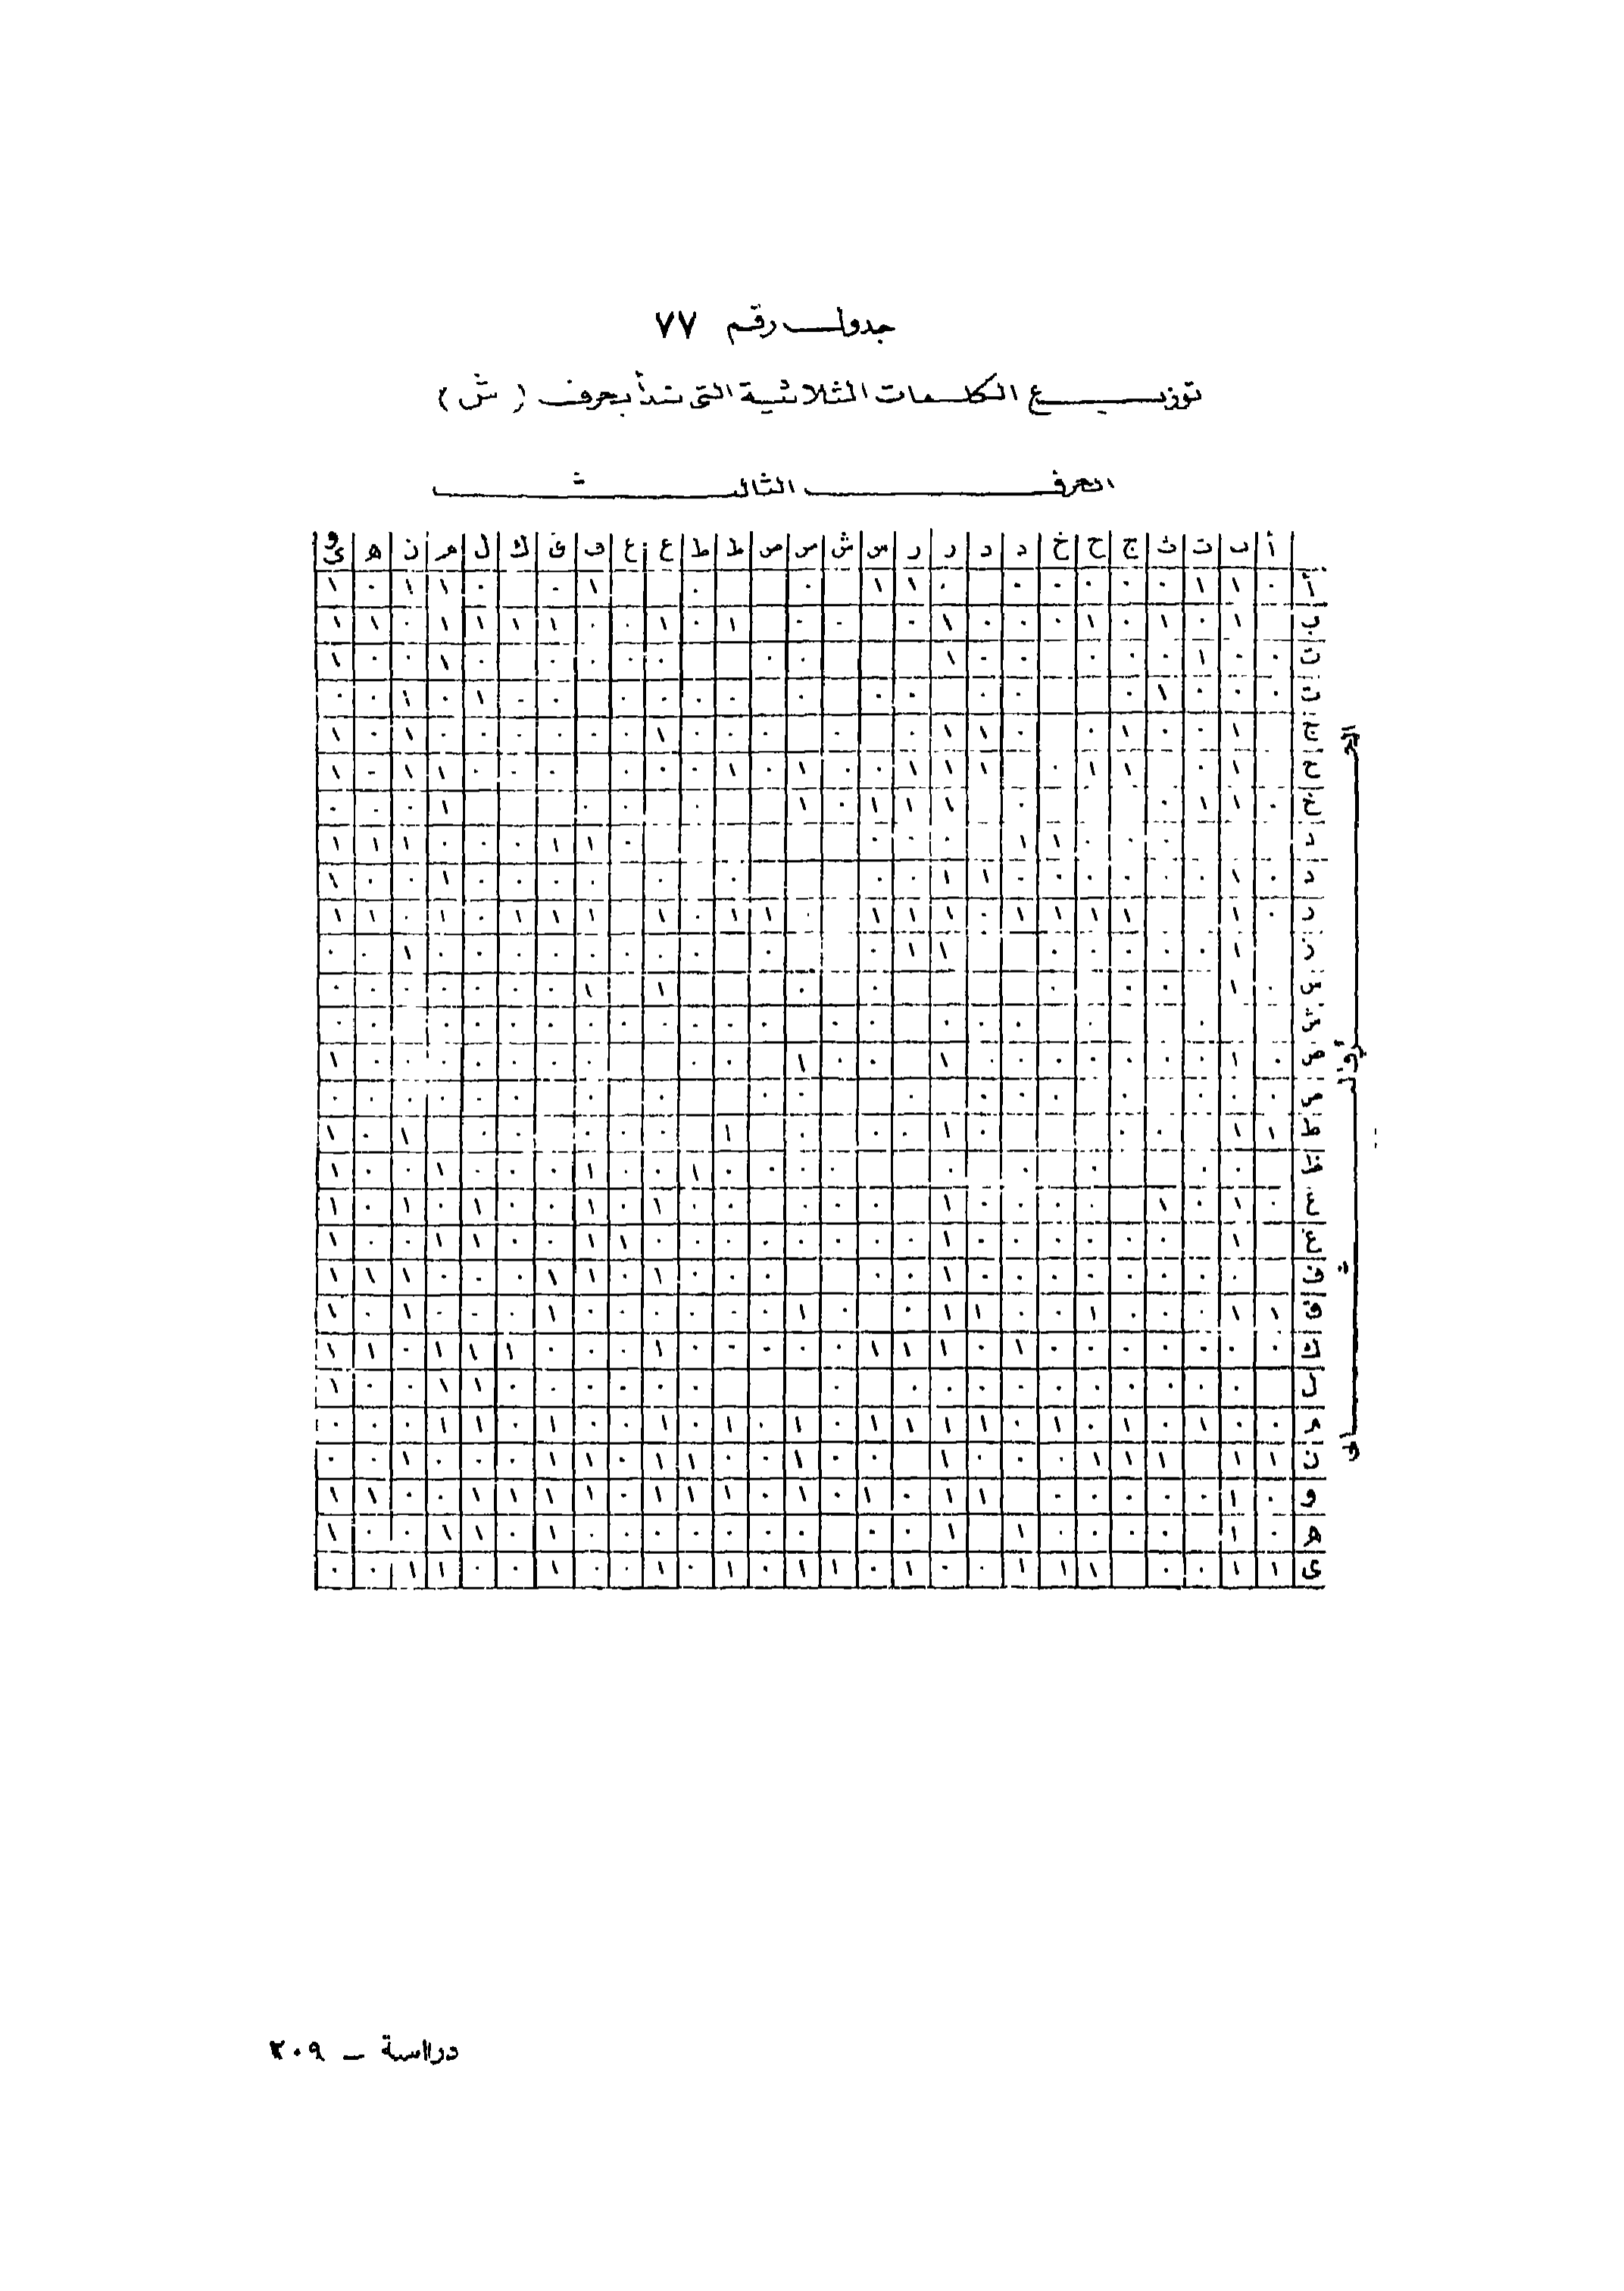 جدول رقم ٧٧
توزيع الكلمات الثلاثية التى تبدأ بحرف (ش)
الحرف الثالث
أ ب ت ث ج ح خ د ذ ر ز س ش ص ض ط ظ ع غ ف ق ك ل م ن ه و ى
أ ٠ ١ ١ ٠ ٠ ٠ ٠ ٠ ٠ ١ ١ ٠ ٠ ١ ٠ ٠ ١ ١ ٠ ١
ب ١ ٠ ١ ٠ ١ ٠ ٠ ٠ ١ ٠ ٠ ٠ ٠ ١ ٠ ١ ٠ ٠ ١ ١ ١ ١ ٠ ١ ١
ت ٠ ٠ ١ ٠ ٠ ٠ ٠ ٠ ١ ٠ ٠ ٠ ٠ ٠ ٠ ٠ ١ ٠ ٠ ١
ث ٠ ٠ ٠ ١ ٠ ٠ ٠ ٠ ٠ ٠ ٠ ٠ ٠ ٠ ٠ ٠ ٠ ١ ٠ ١ ٠ ٠
ج ١ ٠ ٠ ١ ٠ ٠ ١ ١ ٠ ٠ ٠ ٠ ٠ ١ ٠ ٠ ٠ ٠ ٠ ٠ ١ ٠ ١
ح ١ ٠ ١ ١ ٠ ١ ١ ١ ٠ ٠ ١ ٠ ١ ٠ ٠ ٠ ٠ ٠ ٠ ١ ١ ٠ ١
خ ٠ ١ ١ ٠ ٠ ١ ١ ١ ٠ ١ ٠ ٠ ٠ ١ ٠ ٠ ٠
د ٠ ٠ ٠ ١ ١ ٠ ٠ ٠ ٠ ١ ١ ٠ ٠ ٠ ١ ١ ١
ذ ٠ ١ ٠ ٠ ٠ ٠ ٠ ٠ ١ ١ ٠ ٠ ٠ ٠ ٠ ٠ ٠ ٠ ١ ٠ ٠ ١
ر ٠ ١ ١ ١ ١ ١ ٠ ١ ١ ١ ٠ ١ ١ ٠ ١ ١ ١ ١ ٠ ١ ٠ ١ ١
ز ١ ٠ ٠ ٠ ٠ ٠ ١ ١ ٠ ٠ ٠ ٠ ٠ ٠ ٠ ٠ ٠ ٠ ١ ٠ ٠
س ٠ ١ ٠ ٠ ٠ ٠ ٠ ١ ١ ٠ ٠ ٠ ٠ ٠ ٠ ٠
ش ٠ ٠ ٠ ٠ ٠ ٠ ٠ ٠ ٠ ٠ ٠ ٠ ٠ ٠ ٠ ٠ ٠ ٠ ٠
ص ٠ ١ ٠ ٠ ٠ ٠ ٠ ٠ ٠ ١ ٠ ٠ ١ ٠ ٠ ٠ ٠ ٠ ٠ ٠ ٠ ٠ ١
ض ٠ ٠ ٠ ٠ ٠ ٠ ٠ ٠ ٠ ٠ ٠ ٠ ٠ ٠ ٠ ٠ ٠ ٠ ٠
ط ١ ١ ٠ ٠ ٠ ١ ٠ ٠ ٠ ١ ٠ ٠ ٠ ٠ ٠ ١ ٠ ١
ظ ٠ ٠ ٠ ٠ ٠ ٠ ٠ ٠ ٠ ١ ٠ ٠ ١ ٠ ٠ ٠ ١ ٠ ٠ ١
ع ٠ ١ ٠ ١ ٠ ٠ ٠ ٠ ١ ٠ ٠ ٠ ٠ ٠ ٠ ١ ٠ ١ ٠ ٠ ١ ٠ ١ ٠ ١
غ ١ ٠ ٠ ٠ ٠ ٠ ٠ ١ ٠ ٠ ٠ ٠ ٠ ٠ ٠ ١ ١ ٠ ٠ ١ ١ ٠ ٠ ١
ف ٠ ٠ ٠ ٠ ٠ ٠ ٠ ٠ ١ ٠ ٠ ٠ ٠ ٠ ١ ٠ ١ ١ ٠ ٠ ٠ ١ ١ ١
ق ١ ١ ٠ ٠ ٠ ١ ٠ ٠ ١ ١ ٠ ٠ ١ ٠ ٠ ٠ ٠ ٠ ٠ ١ ٠ ٠ ٠ ١ ٠ ١
ك ٠ ٠ ٠ ٠ ٠ ٠ ٠ ١ ٠ ١ ١ ١ ٠ ٠ ٠ ٠ ٠ ١ ٠ ٠ ٠ ١ ١ ١ ٠ ١ ١
ل ٠ ٠ ٠ ٠ ٠ ٠ ٠ ٠ ٠ ٠ ٠ ٠ ٠ ٠ ٠ ٠ ٠ ١ ١ ٠ ٠ ١
م ٠ ٠ ١ ٠ ١ ٠ ١ ٠ ١ ١ ١ ١ ٠ ١ ٠ ١ ٠ ١ ٠ ٠ ١ ٠ ١ ١ ٠ ٠ ٠
ن ١ ١ ١ ١ ١ ٠ ٠ ٠ ١ ٠ ٠ ١ ٠ ٠ ١ ١ ٠ ١ ١ ٠ ٠ ٠ ١ ٠ ٠
و ٠ ١ ٠ ٠ ٠ ٠ ٠ ١ ١ ٠ ١ ٠ ١ ٠ ١ ١ ١ ٠ ١ ١ ١ ١ ٠ ٠ ١ ١
ه ٠ ١ ٠ ٠ ٠ ٠ ١ ١ ٠ ٠ ٠ ٠ ٠ ٠ ٠ ٠ ١ ٠ ١ ١ ٠ ٠ ١
ى ١ ١ ٠ ٠ ١ ١ ١ ٠ ٠ ١ ٠ ١ ١ ٠ ١ ٠ ١ ٠ ٠ ١ ٠ ٠ ١ ١ ٠ ٠
الحرف الثانى
دراسة – ٢٠٩